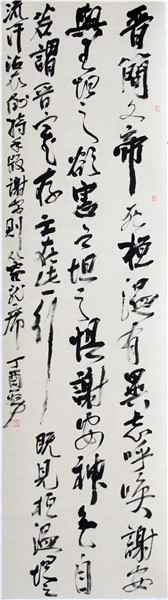 晋簡文帝死桓温有異志呼唤謝安
與王坦之欲害之坦之惧謝安神色自
若謂晋室存亡在此一行既見桓温坦之
流汗沾衣倒持手版謝安則從容就席丁酉